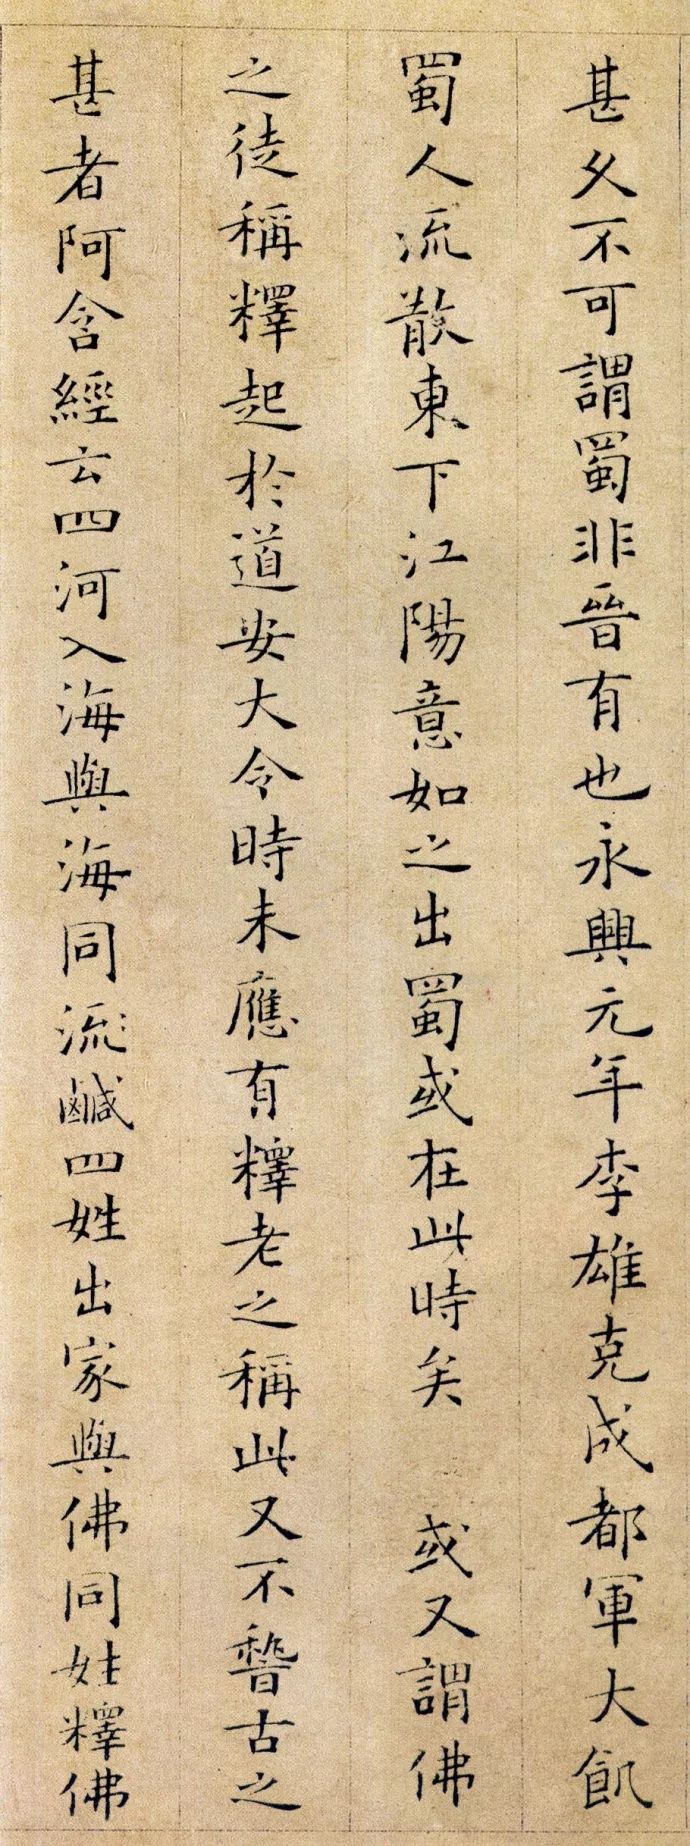 甚久不可謂蜀非晉有也永興元年李雄克成都軍大飢
蜀人流散東下江陽意如之出蜀或在此時矣 或又謂佛
之徒稱釋起於道安大令時未應有釋老之稱此又不稽古之
甚者阿含經云四河入海與海同流鹹四姓出家與佛同姓釋佛